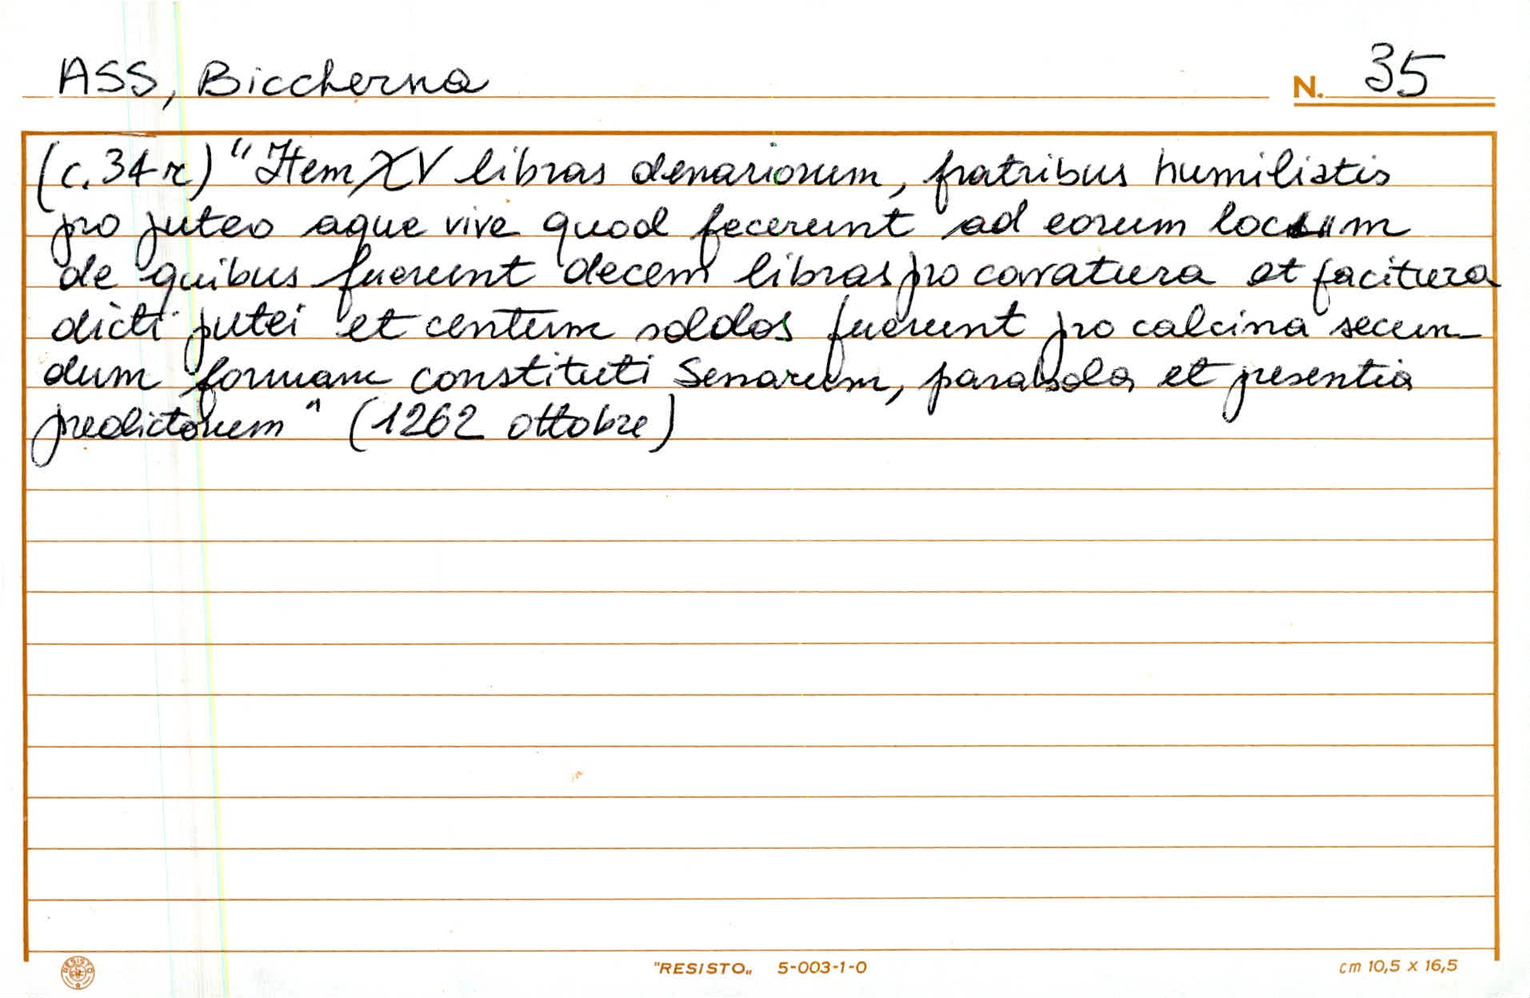 ASS, Biccherna
N. 35
(c. 34 r) "Item XV libras denariorum, fratribus humiliatis
pro puteo aque vive quod fecerunt ad eorum locum
de quibus fuerunt decem libras pro cavatura et facitura
dicti putei et centum soldos fuerunt pro calcina secun-
dum formam constituti Senarum, parabola et presentia
predictorum" (1262 ottobre)
RESISTO
"RESISTO„ 5-003-1-0
cm 10,5 x 16,5